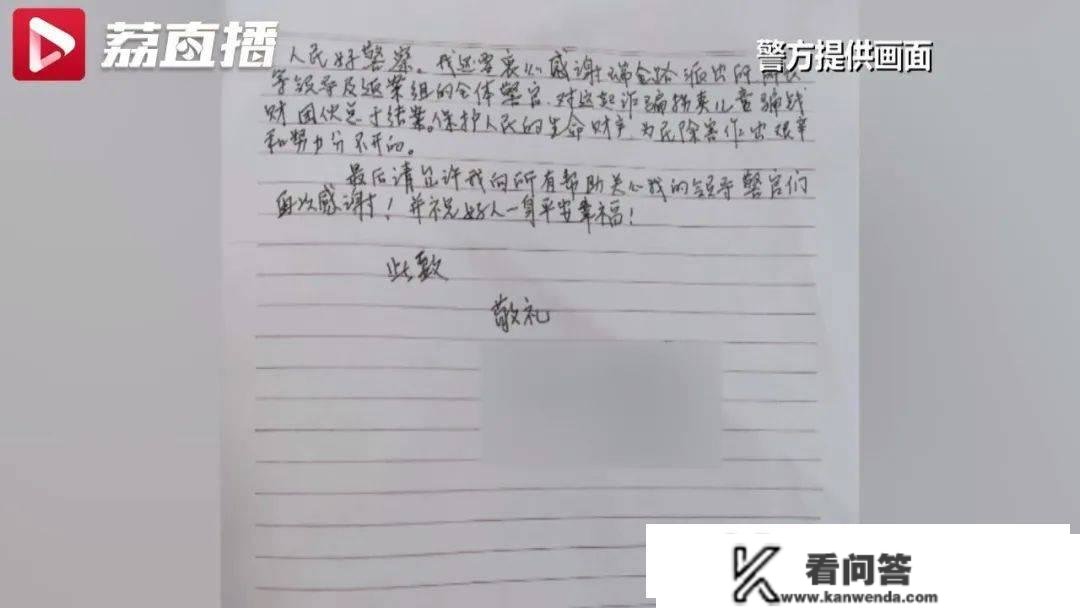 荔直播
警方提供画面
人民好警察。我还要衷心感谢瑞金路派出所
等领导及返案组的全体警官,对这起诈骗拐卖儿童骗钱
财团伙总于结案。保护人民的生命财产,为民除害作出艰辛
和努力分不开的。
最后请允许我向所有帮助关心我的领导警官们
再次感谢!并祝好人一身平安幸福!
此致
敬礼
看问答
www.kanwenda.com